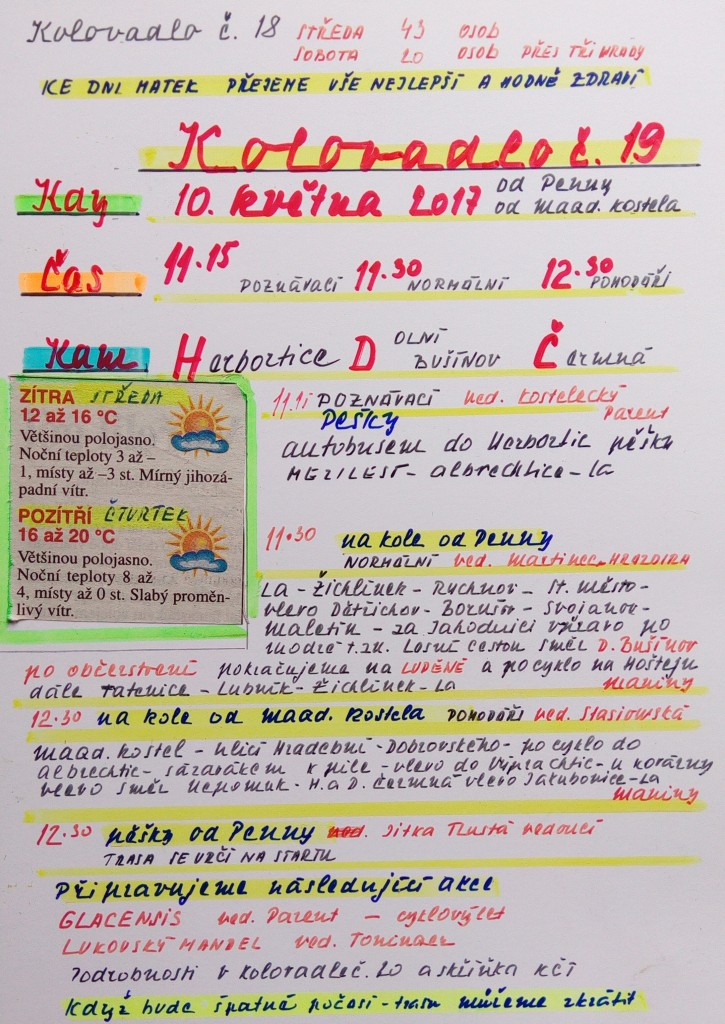 Kolovadlo č. 18 STŘEDA 43 OSOB
SOBOTA 20 OSOB PŘES TŘI HRADY
KE DNI MATEK PŘEJEME VŠE NEJLEPŠÍ A HODNĚ ZDRAVÍ
Kolovadlo č. 19
Kdy 10. května 2017 od Penny
od maad. kostela
Čas 11.15 POZNÁVACÍ 11.30 NORMÁLNÍ 12.30 POHODÁŘI
Kam Herbortice DOLNÍ BUŠÍNOV Čermná
ZÍTRA STŘEDA
12 až 16 °C
Většinou polojasno.
Noční teploty 3 až –
1, místy až –3 st. Mírný jihozá-
padní vítr.
POZÍTŘÍ ČTVRTEK
16 až 20 °C
Většinou polojasno.
Noční teploty 8 až
4, místy až 0 st. Slabý proměn-
livý vítr.
POZNÁVACÍ ved. Kostelecký
Parent
Pěšky
autobusem do Herbortic pěšky
MEZILESÍ - albrechtice - La
11.30 na kole od Penny
NORMÁLNÍ ved. Martinec,
La - Žichlínek - Rychnov - St. město -
vlevo Dětřichov - Borušov - Svojanov -
maletín - za Jahodnicí vpravo po
modré t.zn. Lesní cestou směr D. Bušínov
po občerstvení pokračujeme na LUDĚNĚ a po cyklo na Hoštejn
dále Tatenice - Lubník - Žichlínek - La maniny
12.30 na kole od maad. kostela POHODÁŘI ved. Stasiowská
maad. kostel - ulicí Hradební - Dobrovského - po cyklo do
albrechtic - sázavákem k pile - vlevo do Výprachtic - u kovárny
vlevo směr Nepomuk - H. a D. Čermná vlevo Jakubovice - La
maniny
12.30 pěšky od Penny ved. Jitka Tlustá vedoucí
TRASA SE URČÍ NA STARTU
Připravujeme následující akce
GLACENSIS ved. Parent - cyklovýlet
LUKOVSKÝ MANDEL ved.
Podrobnosti v kolovadle č. 20 a skříňka KČT
Když bude špatné počasí - trasu můžeme zkrátit